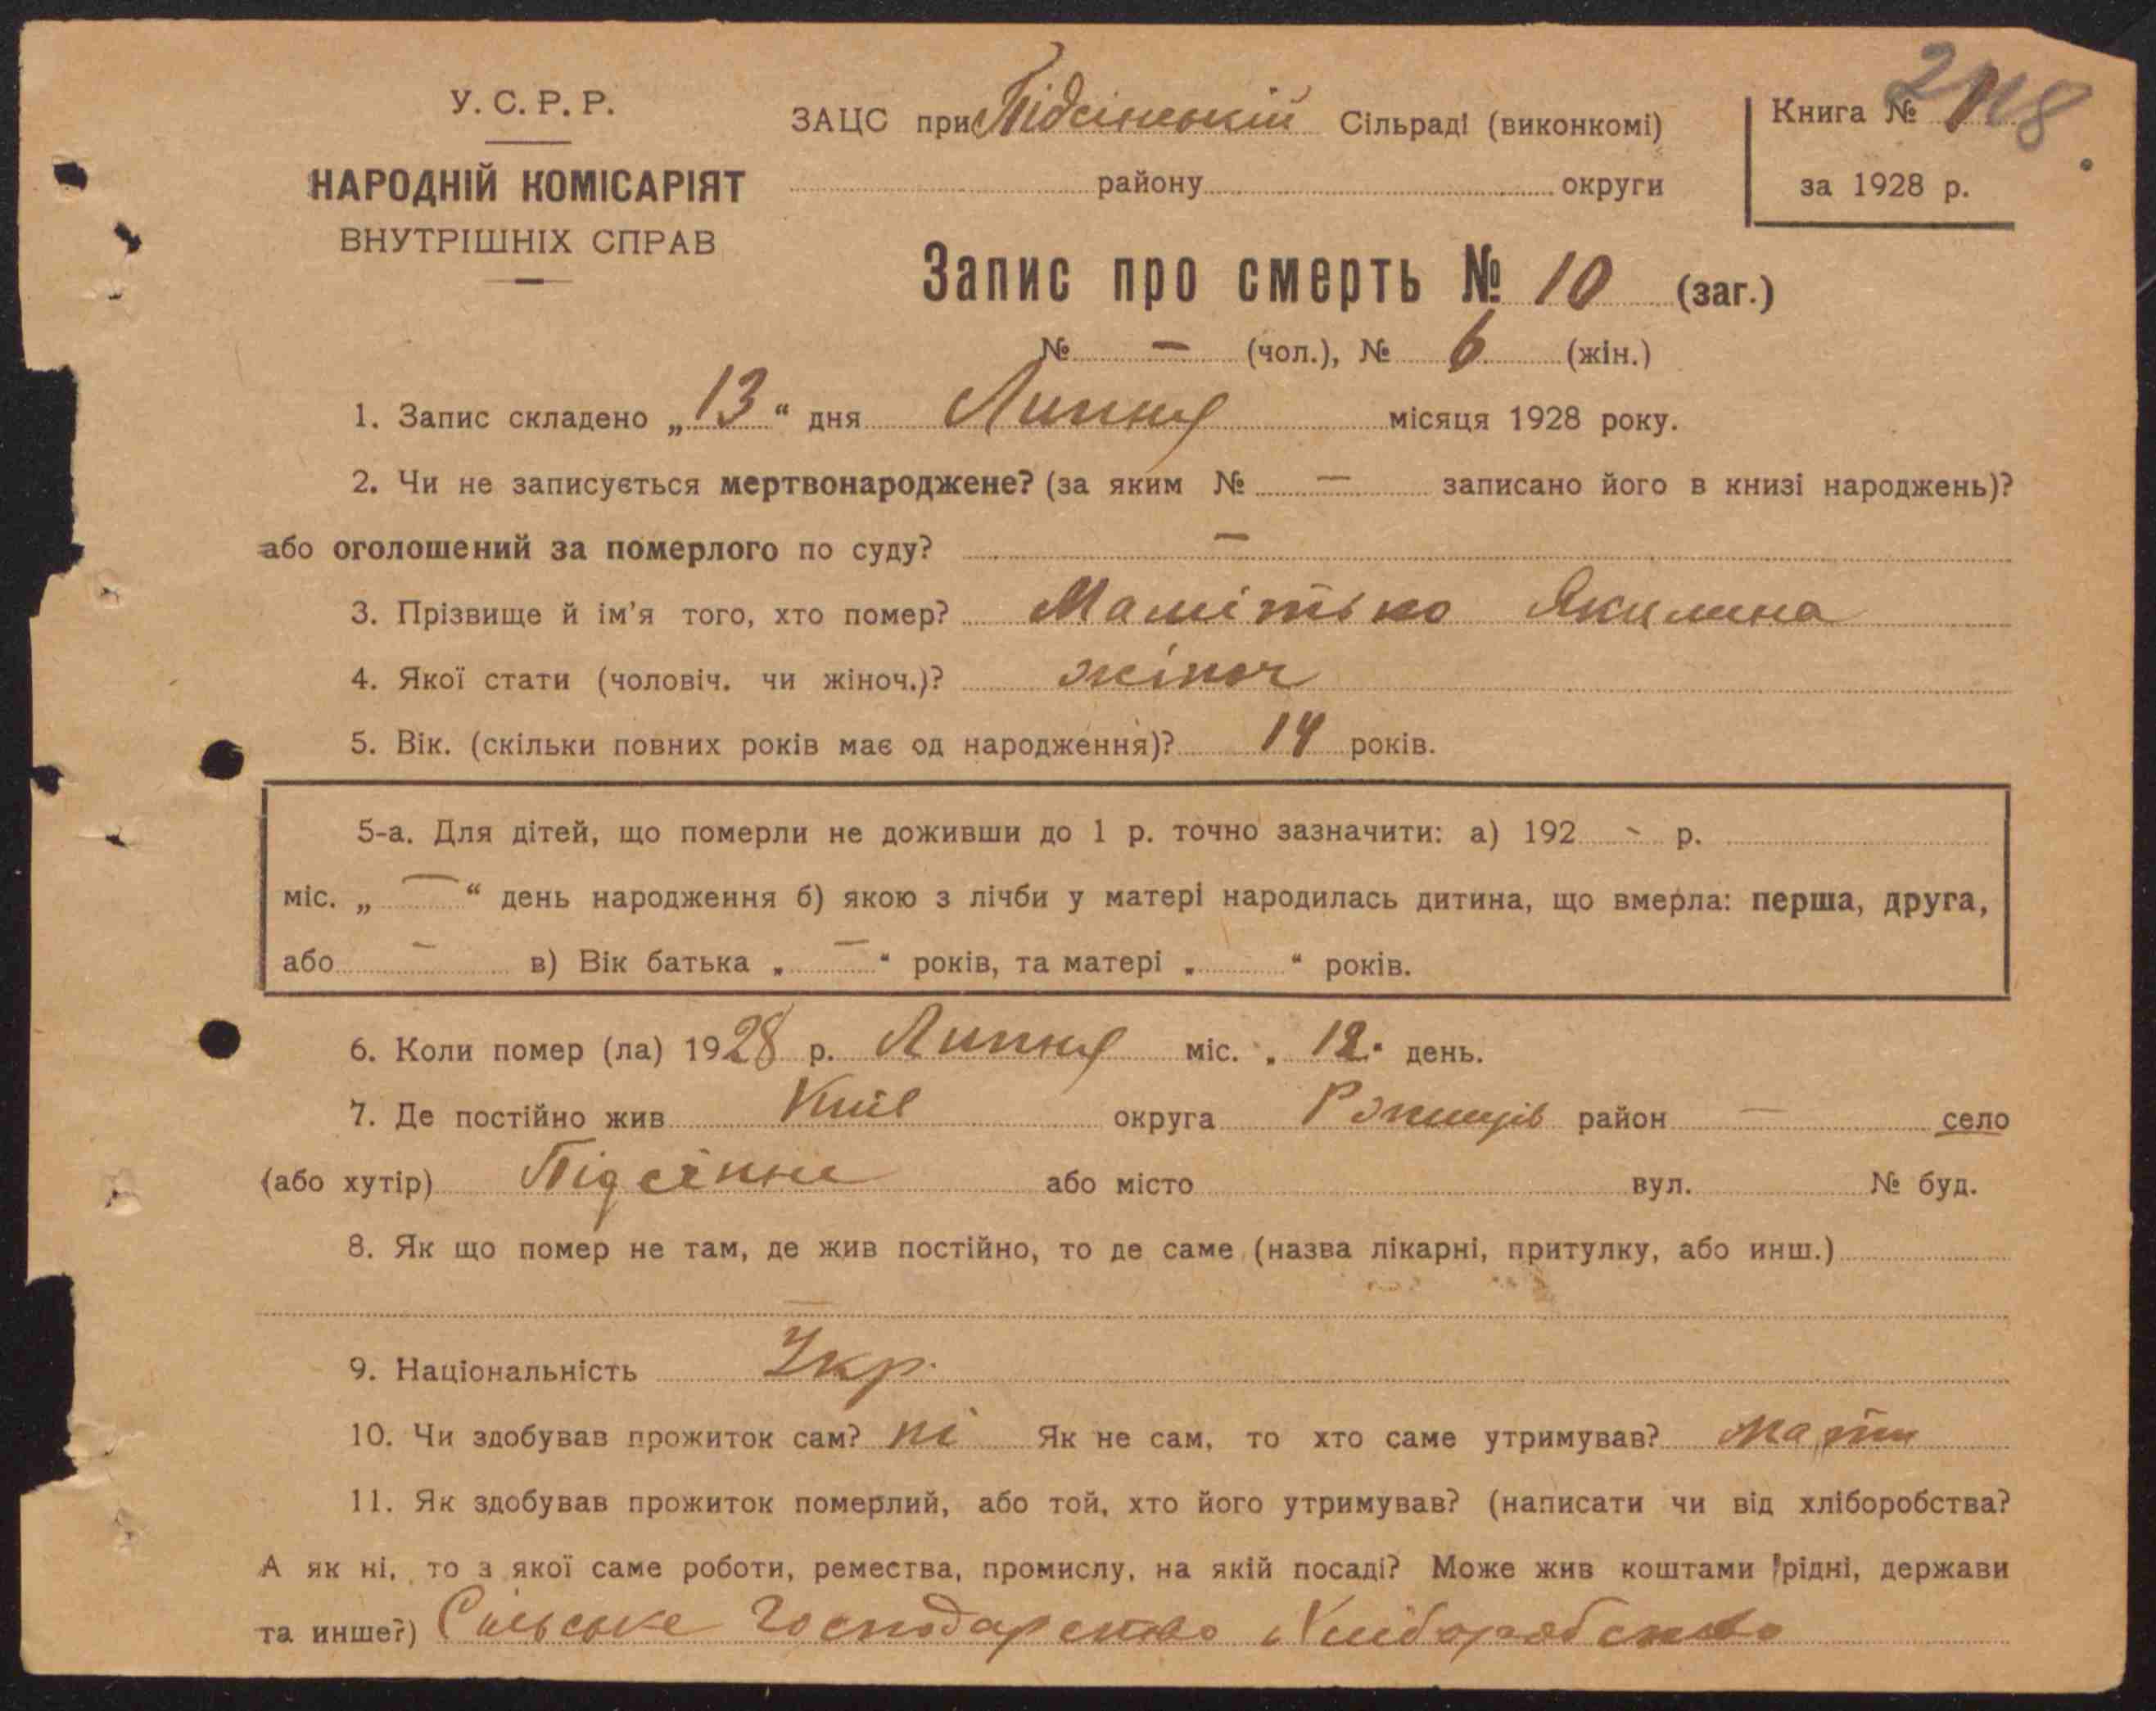 У. С. Р. Р.
НАРОДНІЙ КОМІСАРІЯТ
ВНУТРІШНІХ СПРАВ
ЗАЦС при Підсінській Сільраді (виконкомі)
району округи
Книга №
за 1928 р.
Запис про смерть № 10 (заг.)
№ — (чол.), № 6 (жін.)
1. Запис складено „13“ дня Липня місяця 1928 року.
2. Чи не записується мертвонароджене? (за яким № — записано його в книзі народжень)?
або оголошений за померлого по суду? —
3. Прізвище й ім'я того, хто помер? Якилина
4. Якої стати (чоловіч. чи жіноч.)? жіноч
5. Вік. (скільки повних років має од народження)? 14 років.
5-а. Для дітей, що померли не доживши до 1 р. точно зазначити: а) 192 - р.
міс. „—“ день народження б) якою з лічби у матері народилась дитина, що вмерла: перша, друга,
або — в) Вік батька „—“ років, та матері „ “ років.
6. Коли помер (ла) 1928 р. Липня міс. „12“ день.
7. Де постійно жив Київ округа район — село
(або хутір) Підсінне або місто вул. № буд.
8. Як що помер не там, де жив постійно, то де саме (назва лікарні, притулку, або инш.)
9. Національність Укр.
10. Чи здобував прожиток сам? ні Як не сам, то хто саме утримував? мати
11. Як здобував прожиток померлий, або той, хто його утримував? (написати чи від хліборобства?
А як ні, то з якої саме роботи, ремества, промислу, на якій посаді? Може жив коштами рідні, держави
та инше?) Сільське Господарство Хліборобство